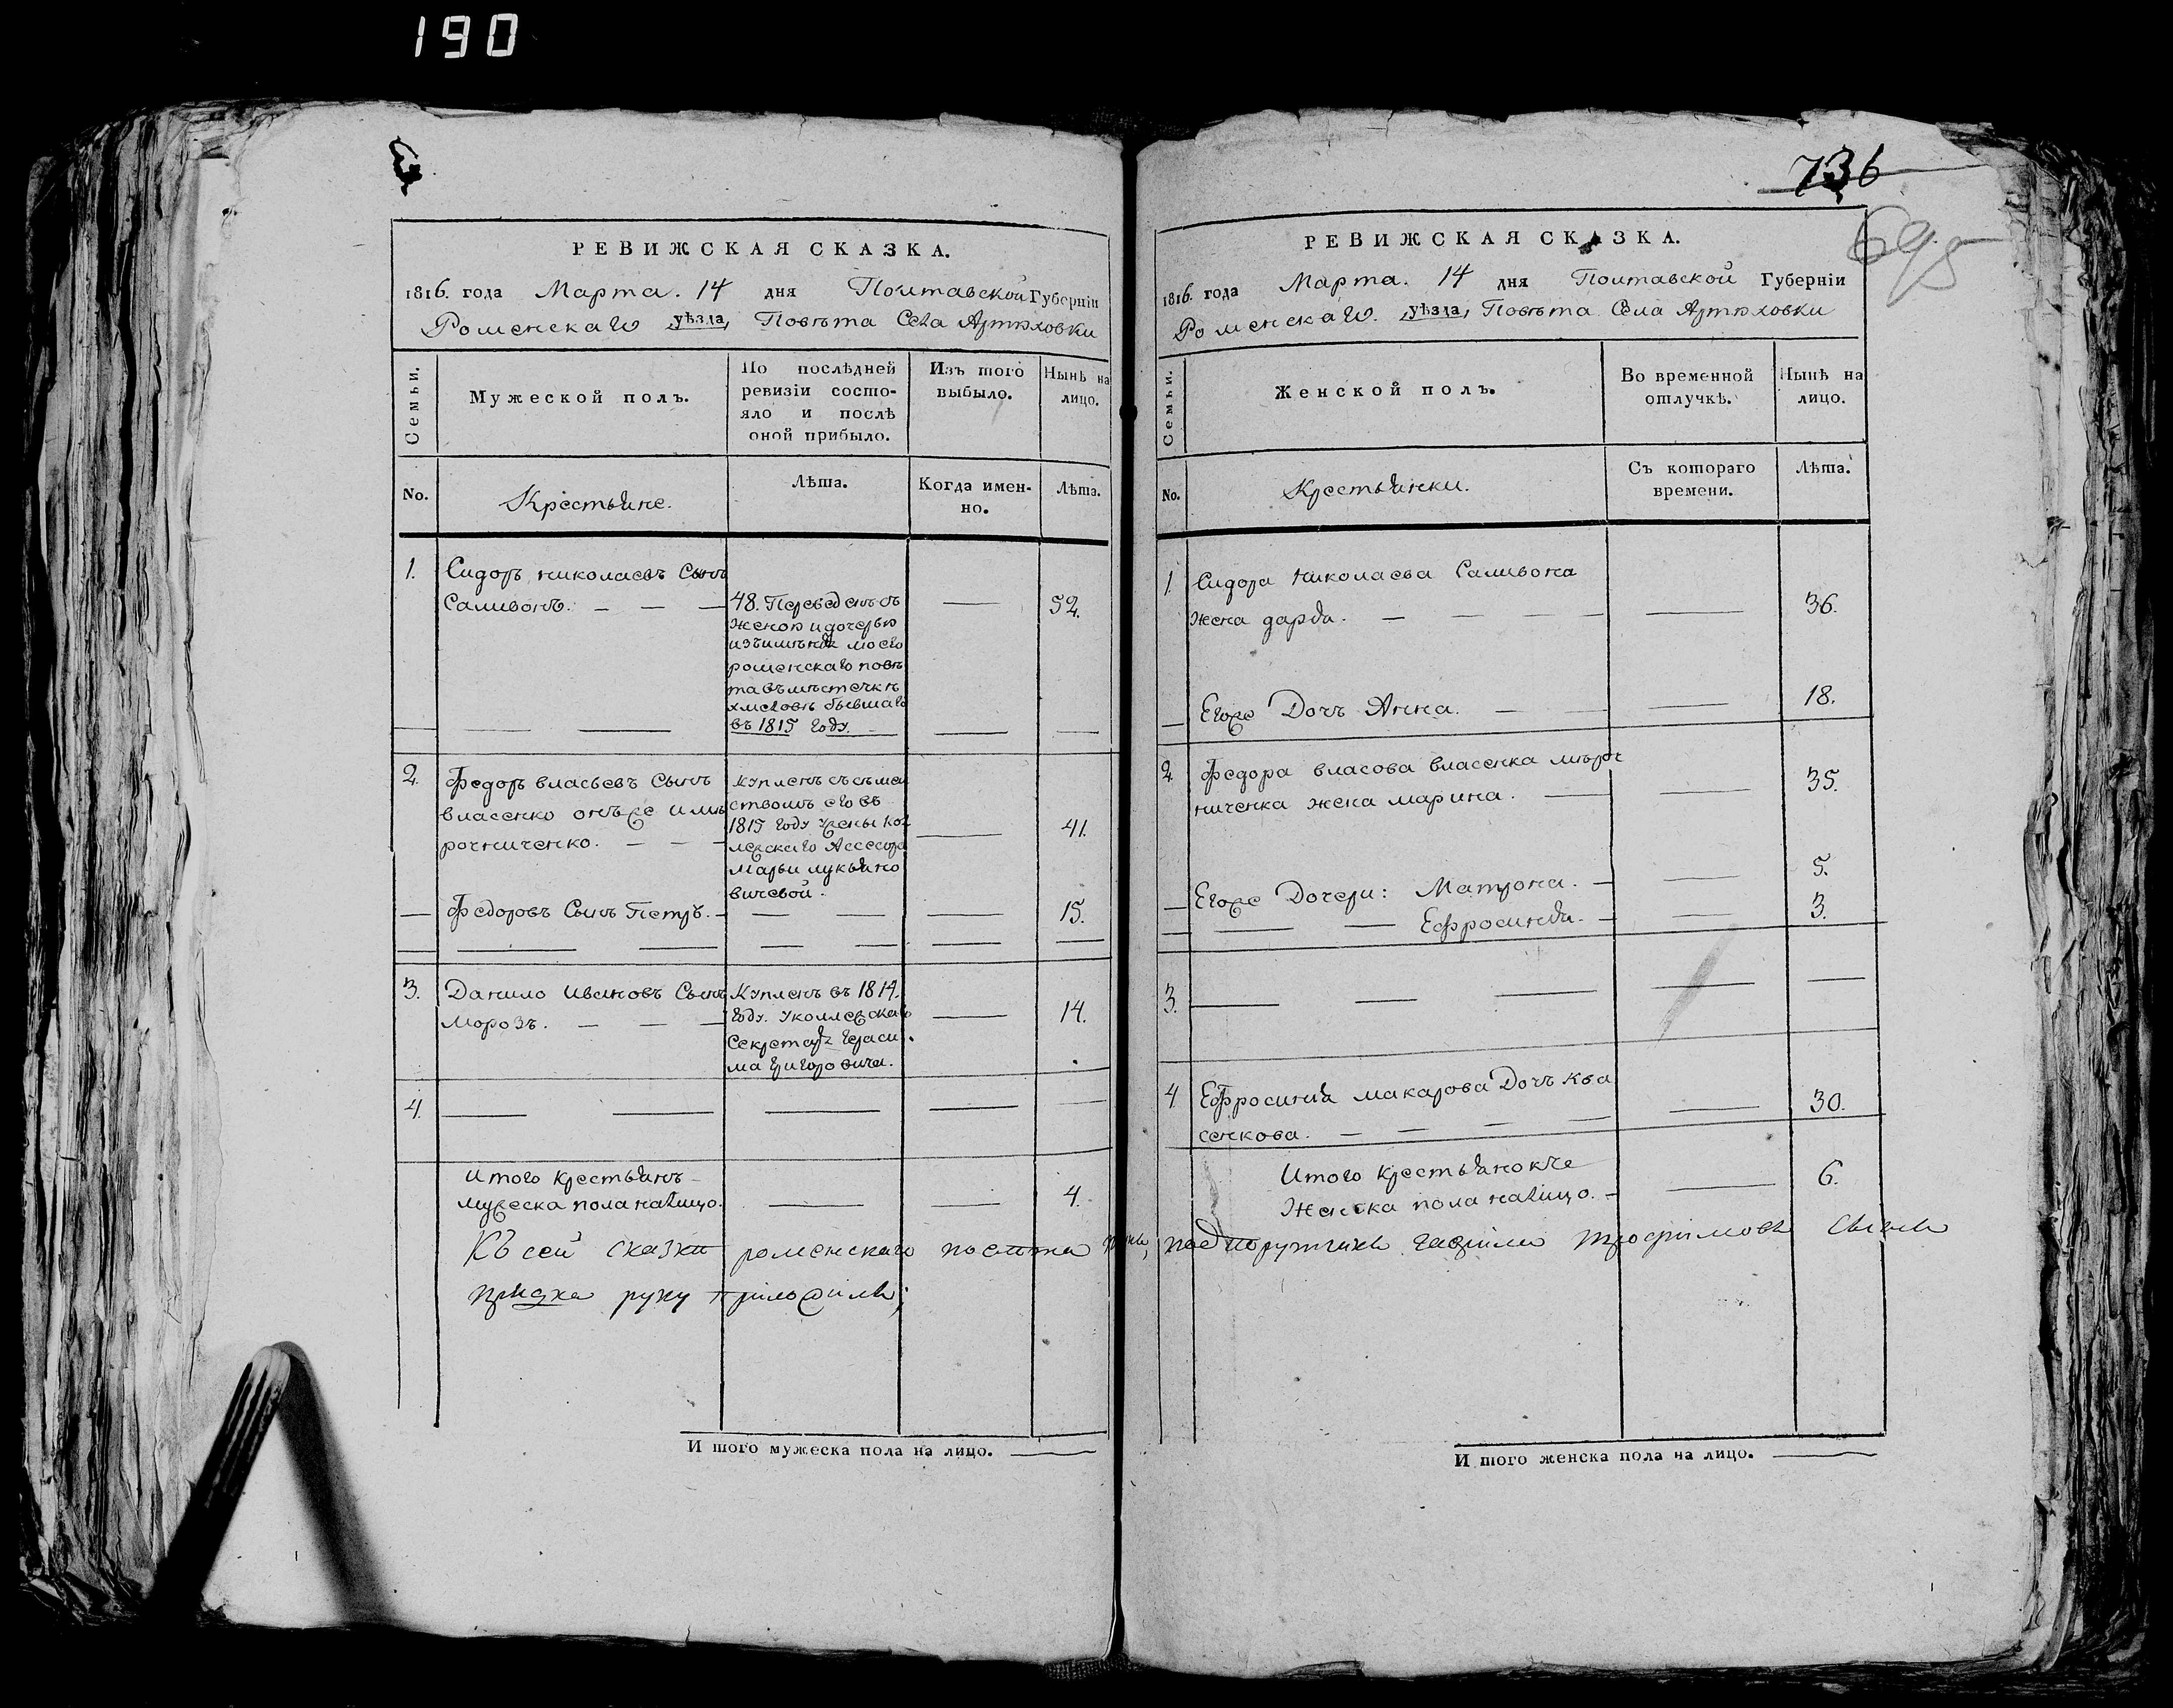 190
РЕВИЖСКАЯ СКАЗКА.
1816. года Марта. 14 дня Полтавской Губерніи
Роменскаго уѣзда, Повѣта Села Артюховки
Семьи.
Мужеской полъ.
По послѣдней
ревизіи состо-
яло и послѣ
оной прибыло.
Изъ того
выбыло.
Нынѣ на
лицо.
No.
Крестьяне.
Лѣта.
Когда имен-
но.
Лѣта.
1. Сидоръ николаевъ Сынъ
Саливонъ. — — — 48. Переведенъ съ — 52.
женою и дочерью
изъ имѣнія моего
роменскаго повѣ
та въ мѣстечкѣ
хмеловѣ бывшаго
въ 1815 году.
2. Федоръ власьевъ Сынъ
власенко онъже и миь
рочниченко. — — —
Купленъ съ семей
ствомъ его въ
1815 году жены кол
лежскаго Ассесора
Марьи лукьяно
вичевой.
— 41.
— Федоровъ Сынъ Петръ. — — — — 15.
3. Данило Ивановъ Сынъ
Морозъ. — — —
Купленъ въ 1814.
году. у коллежскаго
Секретаря Гераси
ма Григоровича.
— 14.
4. — — — — —
Итого крестьянъ
мужеска пола налицо. — — 4.
736
РЕВИЖСКАЯ СКАЗКА.
1816. года Марта. 14 дня Полтавской Губерніи
Роменскаго. уѣзда, Повѣта Села Артюховки
Семьи.
Женской полъ.
Во временной
отлучкѣ.
Нынѣ на
лицо.
No.
Крестьянки.
Съ котораго
времени.
Лѣта.
1 Сидора Николаева Саливона
жена дарья. — — — — 36.
Егоже Дочь Анна. — — — 18.
2 Федора власова власенка мироч
ниченка жена марина. — — 35.
— Егоже Дочери: Матрона. — — 5.
— — — Ефросинья. — — 3.
3. — — — — —
4 Ефросинія макарова Дочь ква
сенкова. — — — — — 30.
Итого крестьянокже
Женска пола налицо. — — 6.
Къ сей сказки роменскаго повѣта подпоручикъ гаврило трофимовъ сынъ
руку приложилъ;
И того мужеска пола на лицо. —
И того женска пола на лицо. —